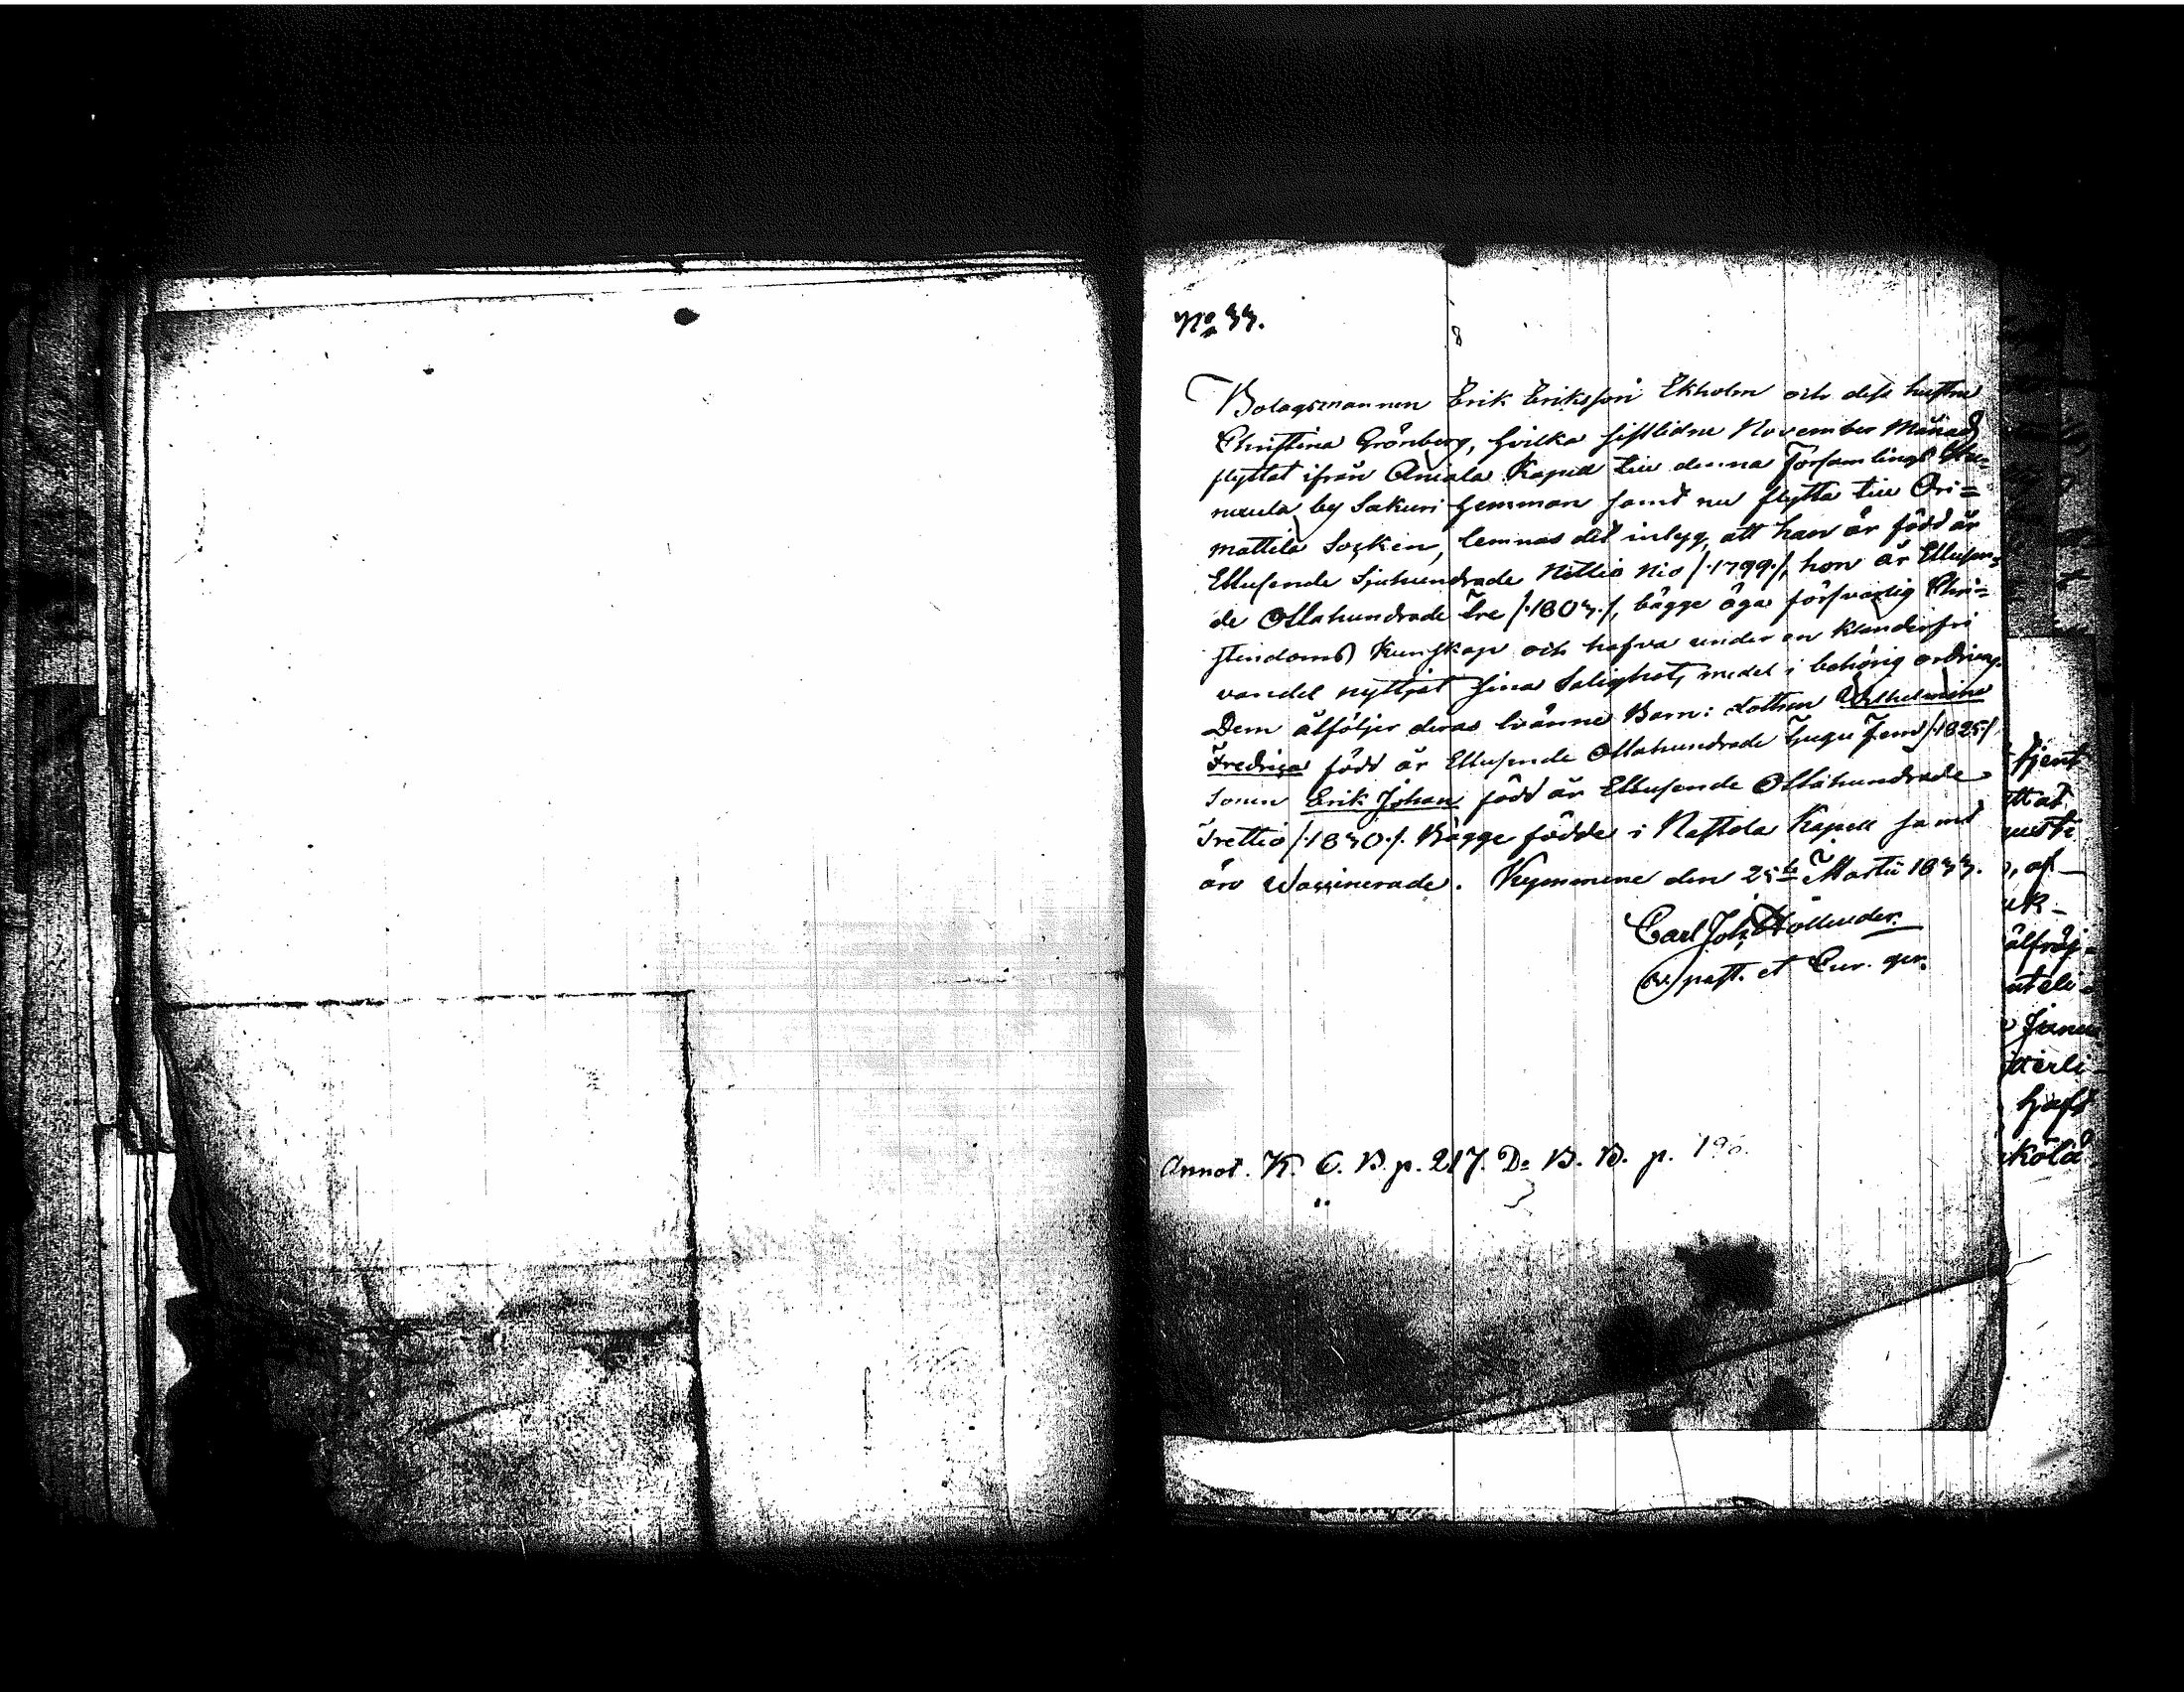 No 33.
8
Bolagsmannen Erik Eriksson Ekholm och dess hustru
Christina Grönberg, hvilka sistlidne November Månad
flyttat ifrån Anjala Kapell till denna Församlings
by Sakuri hemman samt nu flytta till Ori=
mattila Socken, lemnas det intyg, att han är född år
Ettusende Sjuhundrade Nittio Nio /:1799:/, hon år Ettusen=
de Ottahundrade Tre /:1803:/, bägge äga försvarlig Chri=
stendoms Kunskap och hafva under en klanderfri
vandel nyttjat sina Salighets medel i behörig ordning.
Dem åtföljer deras tvänne Barn: dottren Wilhelmina
Fredrica född år Ettusende Ottahundrade tjugu Fem /:1825:/
Sonen Erik Johan född år Ettusende Ottahundrade
Trettio /:1830:/. Bägge födde i Kapell samt
äro Waccinerade. Kymmene den 25te Martii 1833.
Carl Joh.
past. et Cur. ger.
Annot. K. C. B. p. 217. Do B. B. p.
fjent
ttat
, af
haft